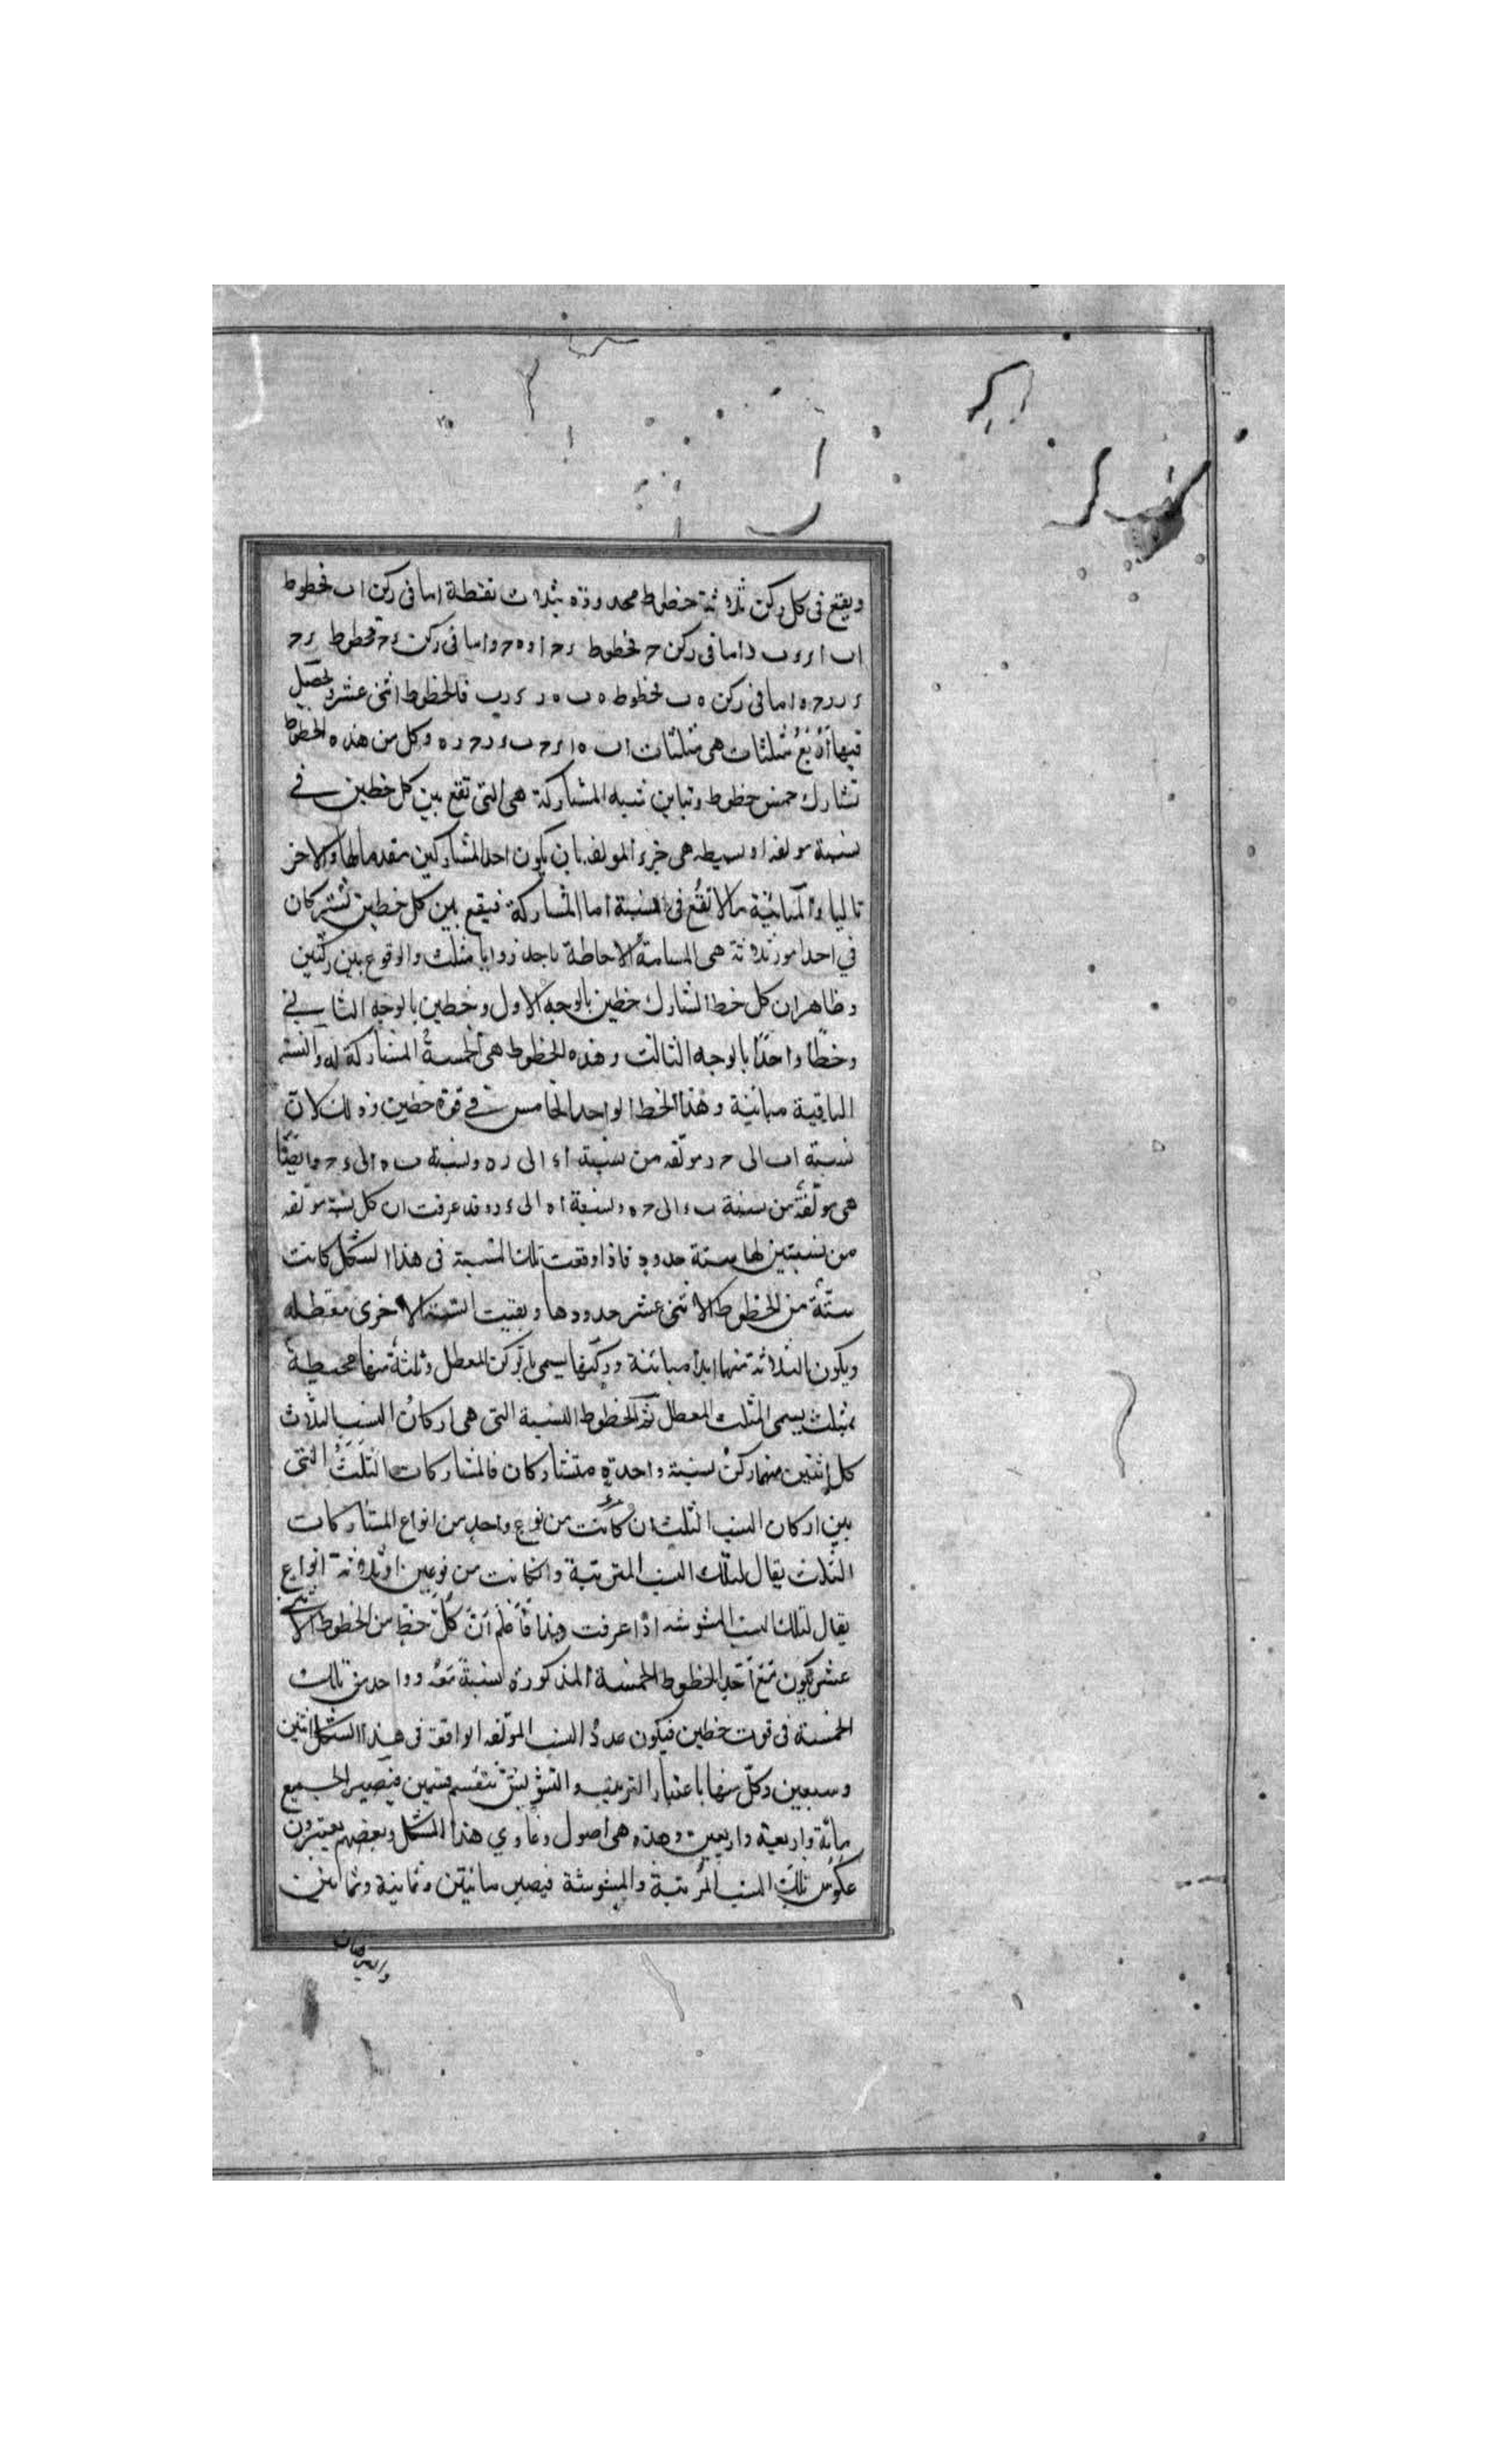 ويقع فى كل ركن ثلاثة خطوط محدودة بثلاث نقطة اما فى ركن اب فخطوط
اب ا ر ر ب و اما فى ركن ح فخطوط ء ح ا ه ه ح و اما فى ركن ء ح فخطوط ء ح
ء ر ر ح و اما فى ركن ه ب فخطوط ه ب ه ر ء ر ب فالخطوط اثنى عشر ويحصل
فيها أربع مثلثات هى مثلثات اب ه ا ء ح ب ء ر ح ر ه وكل من هذه الخطوط
تشارك خمس خطوط وتباين ستة المشاركة هى التى تقع بين كل خطين فى
نسبة مولفه او بسيطه هى جزء المولفه بان يكون احد المشاركين مقدما لها والاخر
تاليا والمباينة ما لا تقع فى النسبة اما المشاركة فيقع بين كل خطين تشتركان
في احد امور ثلاثة هى المسامتة الاحاطة باحد زوايا مثلث والوقوع بين ركنين
وظاهر ان كل خط تشارك خطين بالوجه الاول وخطين بالوجه الثانى
وخطًا واحدًا بالوجه الثالث وهذه الخطوط هى الخمسة المشاركة له والستة
الباقية مباينة وهذا الخط الواحد الخامس فى قوة خطين وذلك لان
نسبة اب الى ح ر مولّفه من نسبة اء الى ر ه ونسبة ب ه الى ء ح وايضًا
هى مولّفة من نسبة ب ء الى ح ه ونسبة ا ه الى ء ر وقد عرفت ان كل نسبة مولّفه
من نسبتين لها ستة حدود فاذا وقعت تلك النسبة فى هذا الشكل كانت
ستّة من الخطوط الاثنى عشر حدودها وبقيت الستة الاخرى معطله
ويكون الثلاثة منها ابدا مباينة وركنها يسمى بالركن المعطل وثلثة منها محيطة
بمثلث يسمى المثلث المعطل ثم الخطوط الستة التى هى اركان النسب الثلاث
كل اثنين منهما ركن نسبة واحدة متشاركان فالمشاركات الثلث التى
بين اركان النسب الثلث ان كانت من نوع واحد من انواع المشاركات
الثلاث يقال لتلك النسب المترتبة وان كانت من نوعين او ثلاثة انواع
يقال لتلك النسب المشوشه اذا عرفت هذا فاعلم أنّ كل خط من الخطوط الاثنى
عشر يكون مع احد الخطوط الخمسة المذكورة نسبة مولفه وواحد من تلك
الخمسة فى قوت خطين فيكون عدد النسب المولّفه الواقعة فى هذا الشكل اثنين
وسبعين وكلّ منها باعتبار الترتيب والتشويش تنقسم قسمين فيصير الجميع
مائة واربعة واربعين وهذه هى اصول دعاوي هذا الشكل وبعضهم يعتبرون
عكوس تلك النسب المرتبة والمشوشة فيصير مائتين وثمانية وثمانين